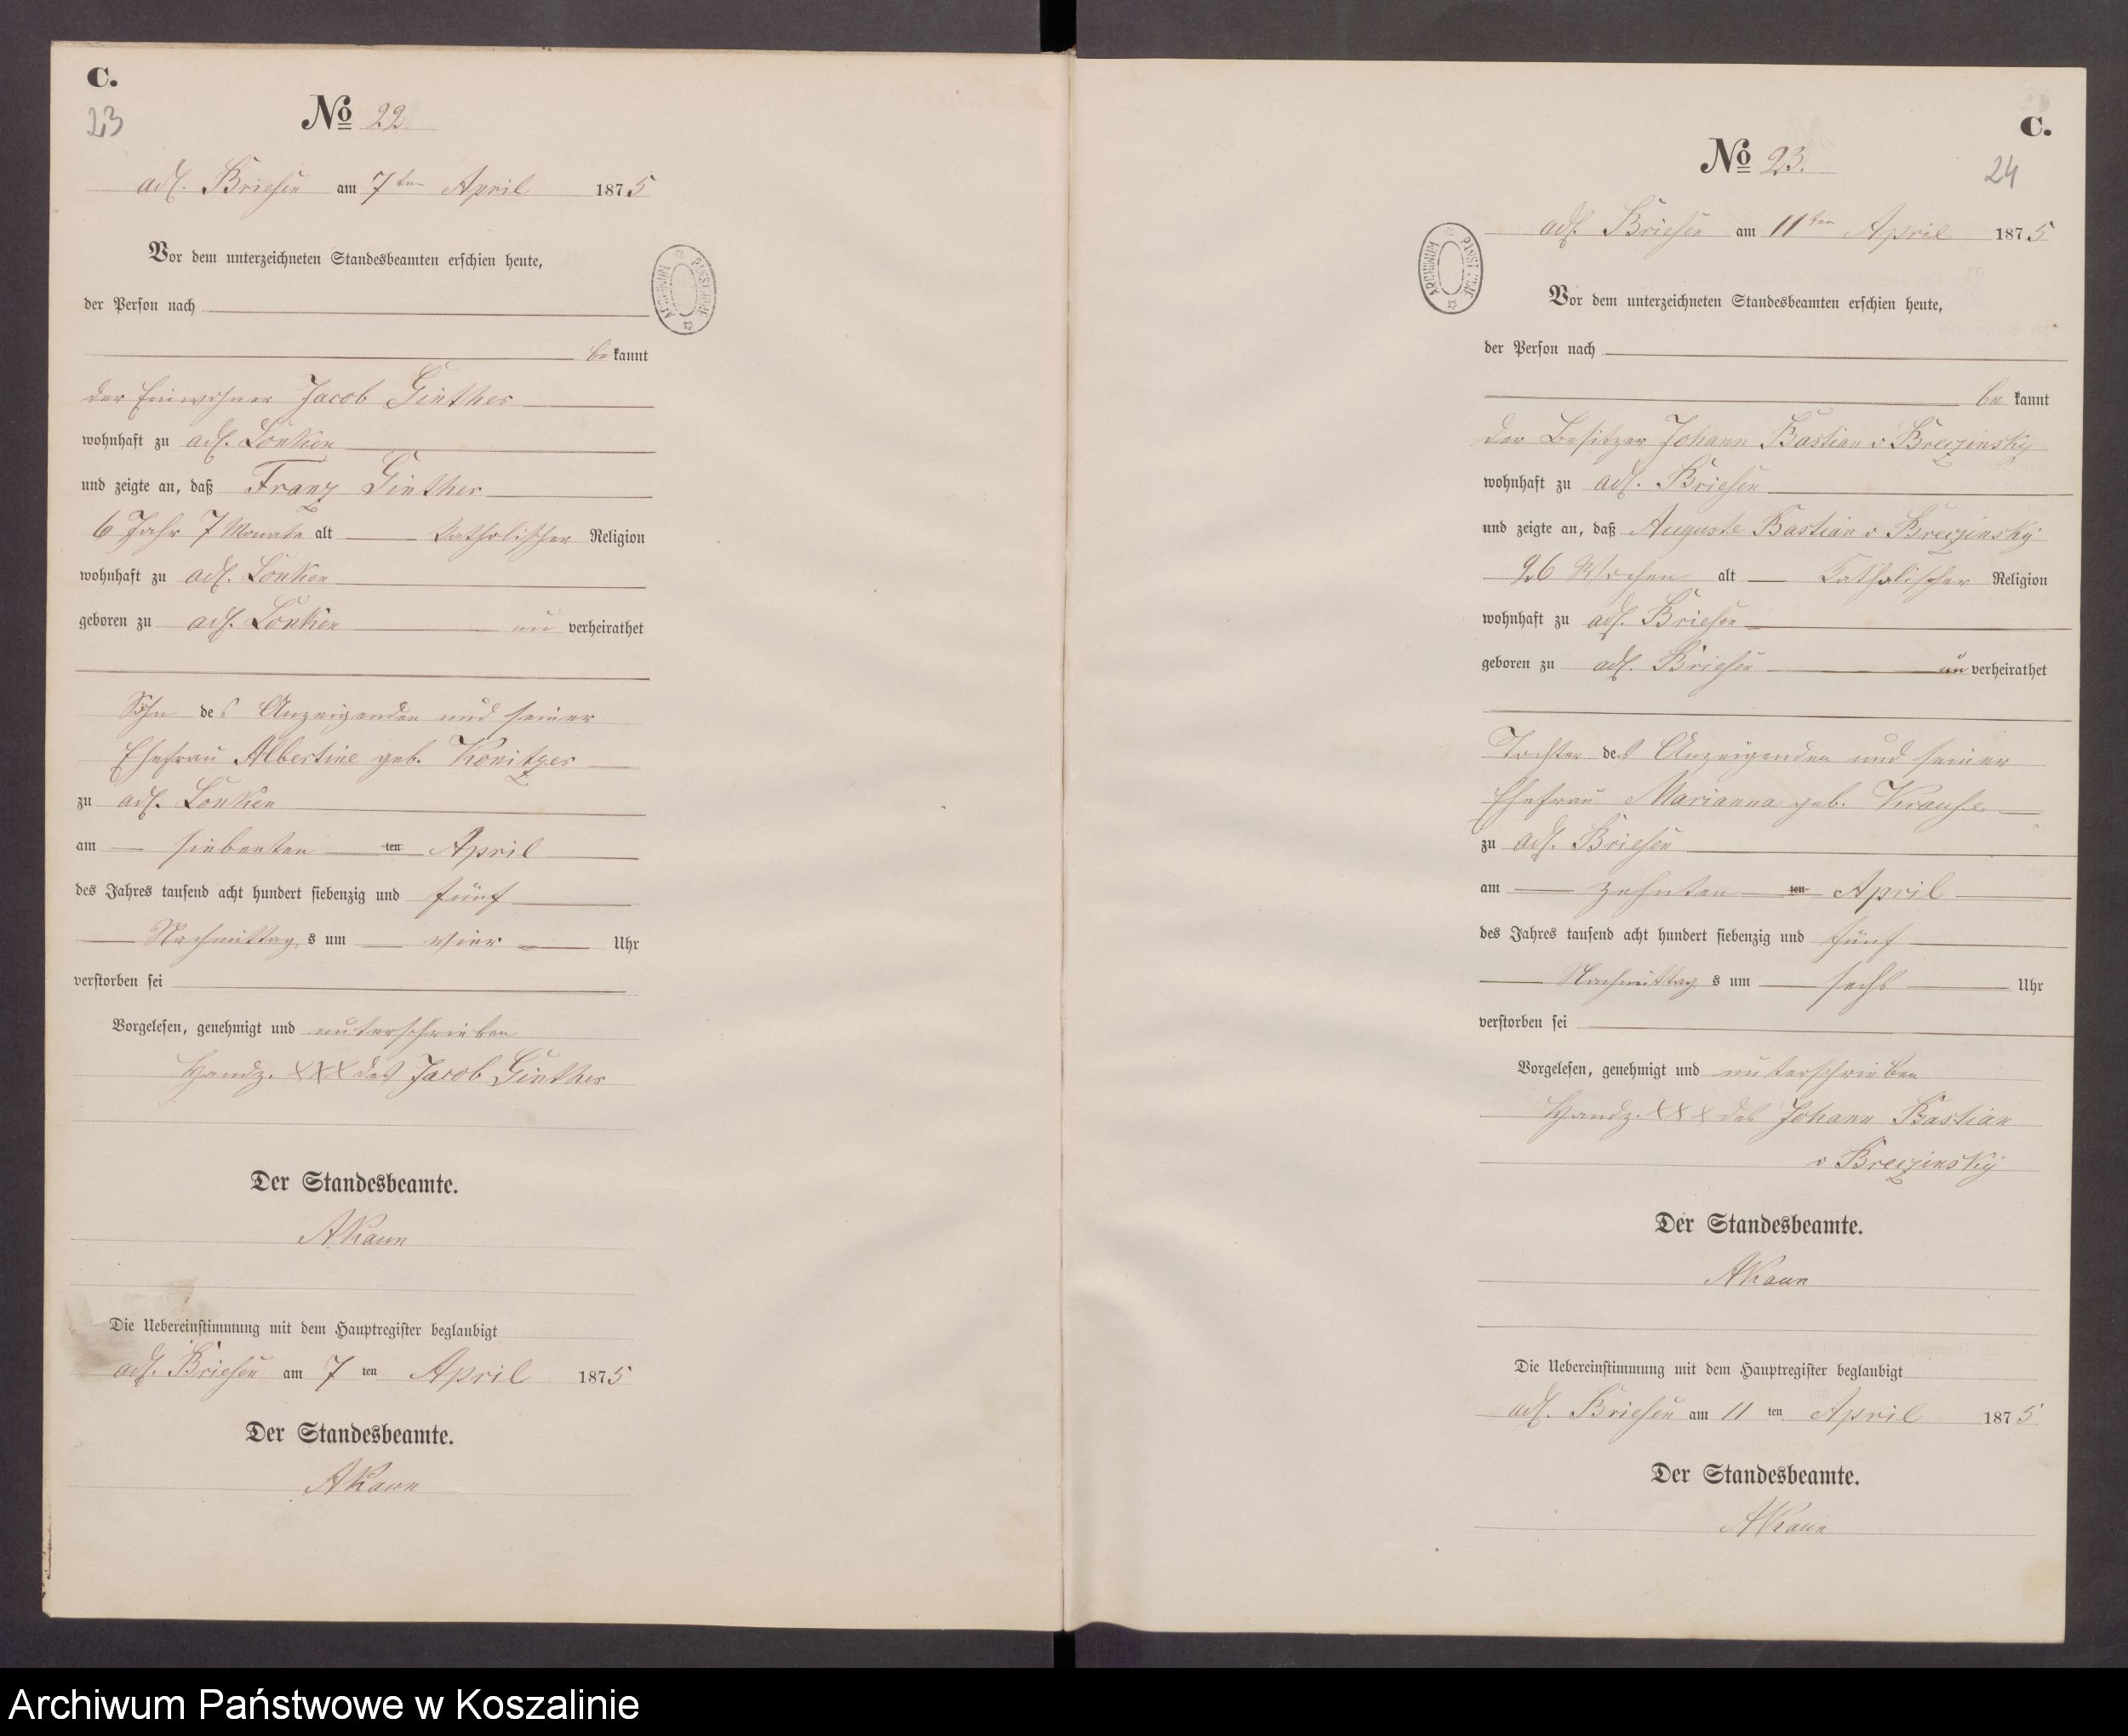 C.
23
No 22
adl. Briesen am 7ten April 1875
Vor dem unterzeichneten Standesbeamten erschien heute,
der Person nach
bekannt
der Einwohner Jacob Ginther
wohnhaft zu adl. Lonken
und zeigte an, daß Franz Ginther
6 Jahr 7 Monate alt Katholischer Religion
wohnhaft zu adl. Lonken
geboren zu adl. Lonken unverheirathet
Sohn des Anzeigenden und seiner
Ehefrau Albertine geb. Konitzer
zu adl. Lonken
am siebenten ten April
des Jahres tausend acht hundert siebenzig und fünf
Nachmittags um vier Uhr
verstorben sei
Vorgelesen, genehmigt und unterschrieben
Handz. XXX des Jacob Ginther
Der Standesbeamte.
AKaun
Die Uebereinstimmung mit dem Hauptregister beglaubigt
adl. Briesen am 7ten April 1875
Der Standesbeamte.
AKaun
ARCHIWUM PAŃSTWOWE
C.
24
No 23.
adl. Briesen am 11ten April 1875
Vor dem unterzeichneten Standesbeamten erschien heute,
der Person nach
bekannt
der Besitzer Johann Bastian v Breczinsky
wohnhaft zu adl. Briesen
und zeigte an, daß Auguste Bastian v Breczinsky
26 Wochen alt Katholischer Religion
wohnhaft zu adl. Briesen
geboren zu adl. Briesen unverheirathet
Tochter des Anzeigenden und seiner
Ehefrau Marianna geb. Krause
zu adl. Briesen
am zehnten ten April
des Jahres tausend acht hundert siebenzig und fünf
Nachmittags um sechs Uhr
verstorben sei
Vorgelesen, genehmigt und unterschrieben
Handz. XXX des Johann Bastian
v Breczinsky
Der Standesbeamte.
AKaun
Die Uebereinstimmung mit dem Hauptregister beglaubigt
adl. Briesen am 11ten April 1875
Der Standesbeamte.
AKaun
ARCHIWUM PAŃSTWOWE
Archiwum Państwowe w Koszalinie